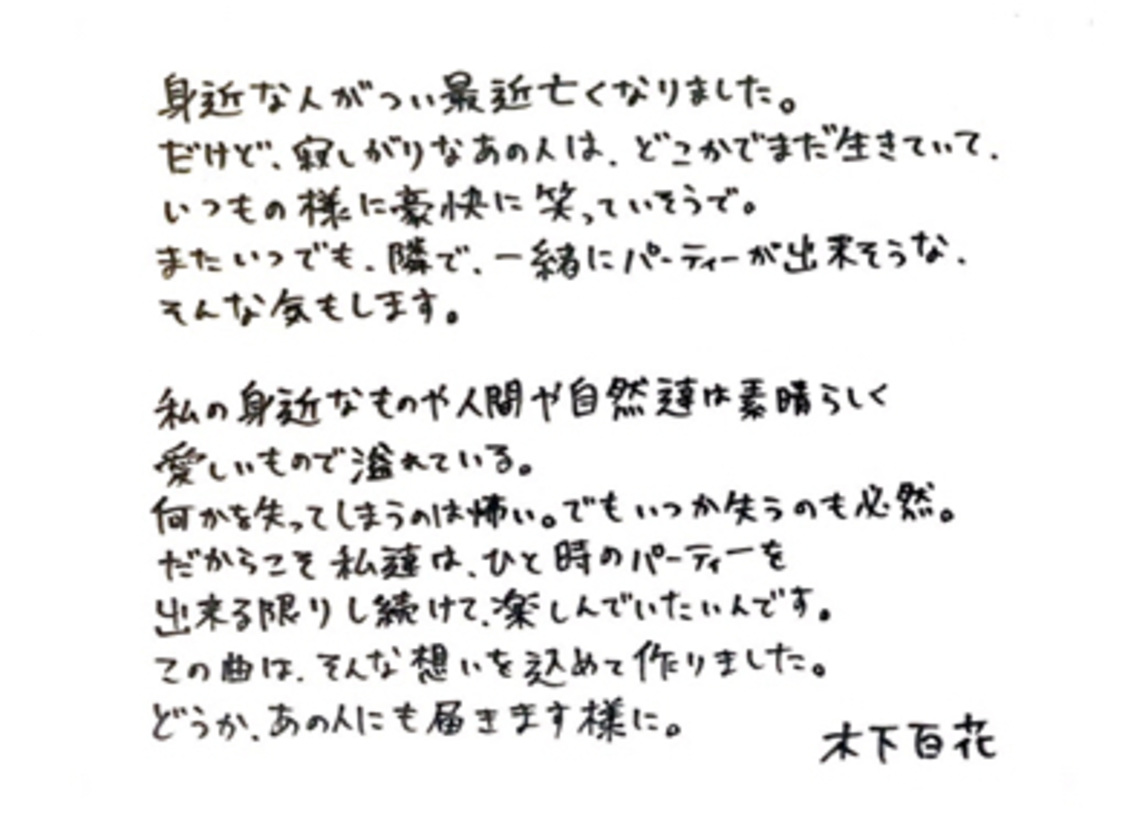 身近な人がつい最近亡くなりました。
だけど、寂しがりなあの人は、どこかでまだ生きていて、
いつもの様に豪快に笑っていそうで。
またいつでも、隣で、一緒にパーティーが出来そうな、
そんな気もします。
私の身近なものや人間や自然達は素晴らしく
愛しいもので溢れている。
何かを失ってしまうのは怖い。でもいつか失うのも必然。
だからこそ私達は、ひと時のパーティーを
出来る限りし続けて、楽しんでいたいんです。
この曲は、そんな想いを込めて作りました。
どうか、あの人にも届きます様に。
木下百花